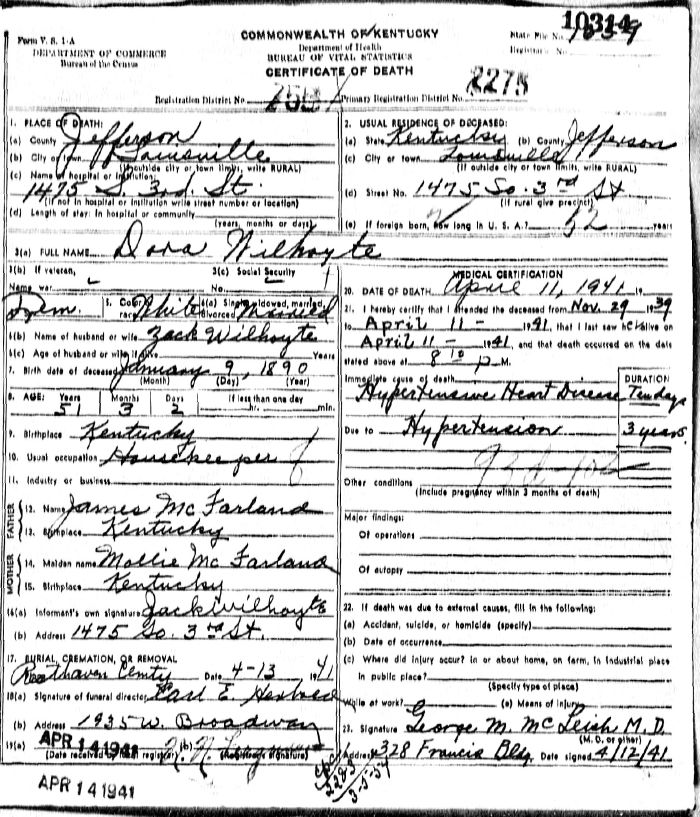 Form V. S. 1-A
DEPARTMENT OF COMMERCE
Bureau of the Census
COMMONWEALTH OF KENTUCKY
Department of Health
BUREAU OF VITAL STATISTICS
CERTIFICATE OF DEATH
10314
State File No.
Registrar's No.
Registration District No.
Primary Registration District No. 2275
1. PLACE OF DEATH:
(a) County Jefferson
(b) City or town Louisville
(If outside city or town limits, write RURAL)
(c) Name of hospital or institution:
1475 S. 3rd. St.
(If not in hospital or institution write street number or location)
(d) Length of stay: In hospital or community
(years, months or days)
2. USUAL RESIDENCE OF DECEASED:
(a) State Kentucky (b) County Jefferson
(c) City or town Louisville
(If outside city or town limits, write RURAL)
(d) Street No. 1475 So. 3rd St
(If rural give precinct)
(e) If foreign born, how long in U. S. A.? years
3(a) FULL NAME Dora Wilhoyte
3(b) If veteran, 3(c) Social Security
Name war No.
Fem. 5. Color or race White 6(a) Single, widowed, married, divorced Married
6(b) Name of husband or wife Zack Wilhoyte
6(c) Age of husband or wife if alive Years
7. Birth date of deceased January 9, 1890
(Month) (Day) (Year)
8. AGE: Years Months Days If less than one day
51 3 2 hr. min.
9. Birthplace Kentucky
10. Usual occupation Housekeeper
11. Industry or business
FATHER
12. Name James McFarland
13. Birthplace Kentucky
MOTHER
14. Maiden name Mollie McFarland
15. Birthplace Kentucky
16(a) Informant's own signature Zack Wilhoyte
(b) Address 1475 So. 3rd St.
17. BURIAL, CREMATION, OR REMOVAL
Resthaven Cmty Date 4-13 1941
18(a) Signature of funeral director
(b) Address 1935 W. Broadway
19(a) APR 14 1941 (b)
(Date received by local registrar) (Registrar's signature)
APR 14 1941
MEDICAL CERTIFICATION
20. DATE OF DEATH April 11, 1941 19
21. I hereby certify that I attended the deceased from Nov. 29 1939
to April 11 - 1941, that I last saw her alive on
April 11 - 1941, and that death occurred on the date
stated above at 8 10 P. M.
Immediate cause of death DURATION
Hypertensive Heart Disease Ten days
Due to Hypertension 3 years.
Other conditions
(Include pregnancy within 3 months of death)
Major findings:
Of operations
Of autopsy
22. If death was due to external causes, fill in the following:
(a) Accident, suicide, or homicide (specify)
(b) Date of occurrence
(c) Where did injury occur? in or about home, on farm, in industrial place
in public place?
(Specify type of place)
While at work? (e) Means of injury
23. Signature George M. McLeish M.D.
(M. D. or other)
Address 328 Francis Bldg. Date signed 4/12/41